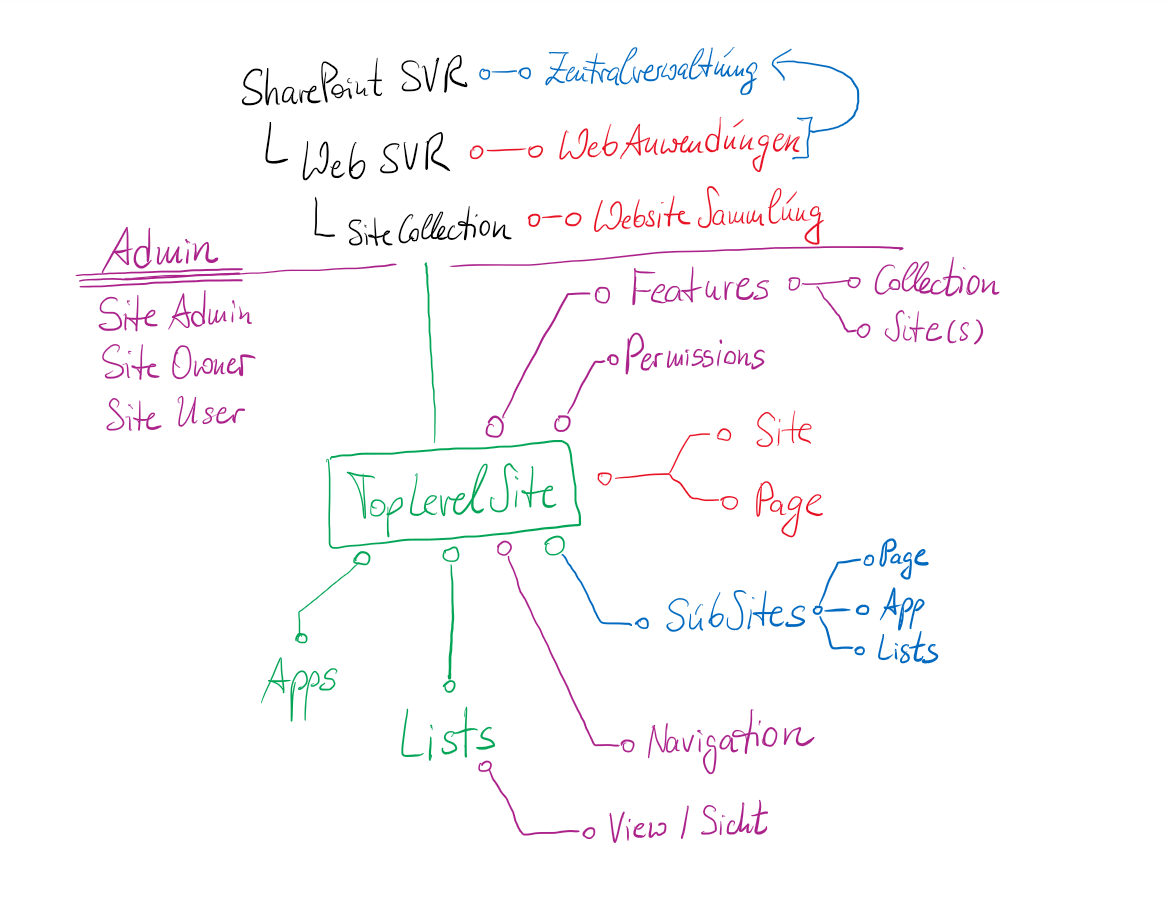 SharePoint SVR Zentralverwaltung
Web SVR Web Anwendungen
Site Collection Website Sammlung
Admin
Site Admin
Site Owner
Site User
Features Collection
Site(s)
Permissions
Site
TopLevel Site
Page
Page
SubSites App
Lists
Apps
Lists
Navigation
View / Sicht